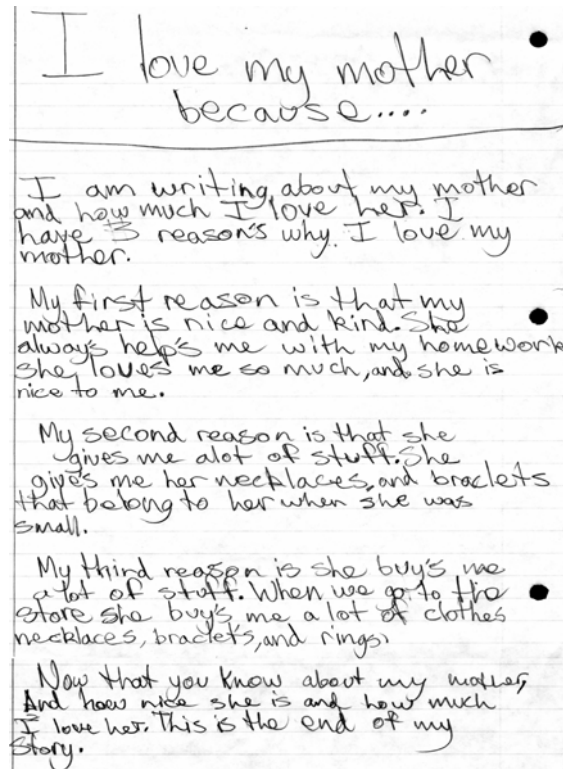 I love my mother
because....
I am writing about my mother
and how much I love her. I
have 3 reason's why I love my
mother.
My first reason is that my
mother is nice and kind. She
always help's me with my homework
she loves me so much, and she is
nice to me.
My second reason is that she
gives me alot of stuff. She
give's me her necklaces, and braclets
that belong to her when she was
small.
My third reason is she buy's me
a lot of stuff. When we go to the
store she buy's me a lot of clothes
necklaces, braclets, and rings.
Now that you know about my mother,
And how nice she is and how much
I love her. This is the end of my
story.